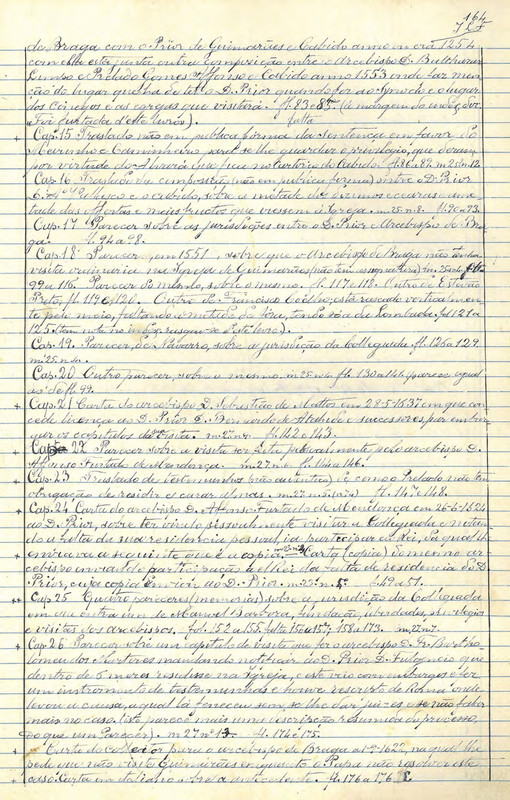 164
de Braga com o Prior de Guimarães e Cabido anno m era 1254
com elle está junta outra composição entre o Arcebispo D. Balthazar
Limpo e Prelado Gomes Affonso e Cabido anno 1553 onde faz men
ção do lugar que ha de ter o D. Prior quando for ao Synodo e o lugar
dos Conegos e as egrejas que visitará. fl. 83 e 85
(Foi furtada d'este livro). falta
Cap. 15 Traslado não em publica forma da Sentença em favor do
Marinho e Caminheiro para se lhe guardar o privilegio, que deram
por virtude do Alvará que fica no Cartorio do Cabido. fl. 86 a 89. m. 25 n. 12
Cap. 16 Traslado da composição (não em publica forma) entre o D. Prior
e o cabido, sobre a metade dos dizimos e outras a me
tade das offertas e mais fructos que viessem á Igreja. m. 25 n. 8. fl. 90 a 93.
Cap. 17 Parecer sobre as jurisdicções entre o D. Prior e Arcebispo de Bra
ga. fl. 94 a 98.
Cap. 18 Parecer, em 1551, sobre que o Arcebispo de Braga não tenha
visita ordinaria na Igreja de Guimarães (não tem assignatura) m. 25
99 a 116. Parecer do mesmo, sobre o mesmo. fl. 117 e 118. Outro de Estevão
Preto, fl. 119 e 120. Outro de Francisco Coelho; está rasgado verticalmen
te pelo meio, faltando a metade do lado da lombada. fol 121 a
125. (tem nota no index: rasgou-se este livro).
Cap. 19. Parecer, de Navarro, sobre a jurisdicção da Collegiada. fl. 126 a 129
m. 25 n.
Cap. 20 Outro parecer, sobre o mesmo. m. 25 fl. 130 a 141. (parece egual
ao de fl. 99.
Cap. 21 Carta do arcebispo D. Sebastião de Mattos em 28-5-1637 em que con
cede licença ao D. Prior D. Bernardo de Athaide e successores para entre
gar os capitulos da visita. fl. 142 e 143.
Cap. 22 Parecer sobre a visita ser feita pessoalmente pelo arcebispo D.
Affonso Furtado de Mendonça. m. 27 n. 6. fl. 144 a 146.
Cap. 23 Traslado de testemunhos (não autentica) de como o Prelado não tem
obrigação de residir e curar almas. m. 27 n. 5 fl. 147 e 148.
Cap. 24 Carta do arcebispo D. Affonso Furtado de Mendonça em 26-6-1624
ao D. Prior, sobre ter vindo pessoalmente visitar a Collegiada e notan
do a falta de sua residencia pessoal, ia participar ao Rei, da qual lhe
enviava a seguinte que é a copia. Carta (copia) do mesmo ar
cebispo enviando de participação a el Rei da falta de residencia do D.
Prior, cuja copia enviou ao D. Prior. m. 25 n. 5. fl. 49 a 51.
Cap. 25 Quatro pareceres (memorias) sobre a jurisdicção da Collegiada
em que entra um de Manuel Barbosa, fundação, liberdades, privilegios
e visitas dos arcebispos. fol. 152 a 155. falta 156 a 157; 158 a 173. m. 27 n. 7
Cap. 26 Parecer sobre um capitulo de visita que fez o arcebispo D. Fr. Bartho
lomeu dos Martyres mandando notificar ao D. Prior D. Fulgencio que
dentro de 5 mezes residisse na Igreja, e este veio com embargos e fez
um instrumento de testemunhas e houve rescripto de Roma onde
levou a causa, a qual lá feneceu sem se lhe dar juizes e se não fallou
mais no caso. (este parece mais uma descripção resumida do processo,
do que um Parecer). m 27 nº 13. fl. 174 e 175.
Carta do Colleitor para o arcebispo de Braga 1622, na qual lhe
pede que não visite Guimarães emquanto o Papa não resolver este
caso. Carta em italiano sobre a antecedente. fl. 176 a 176